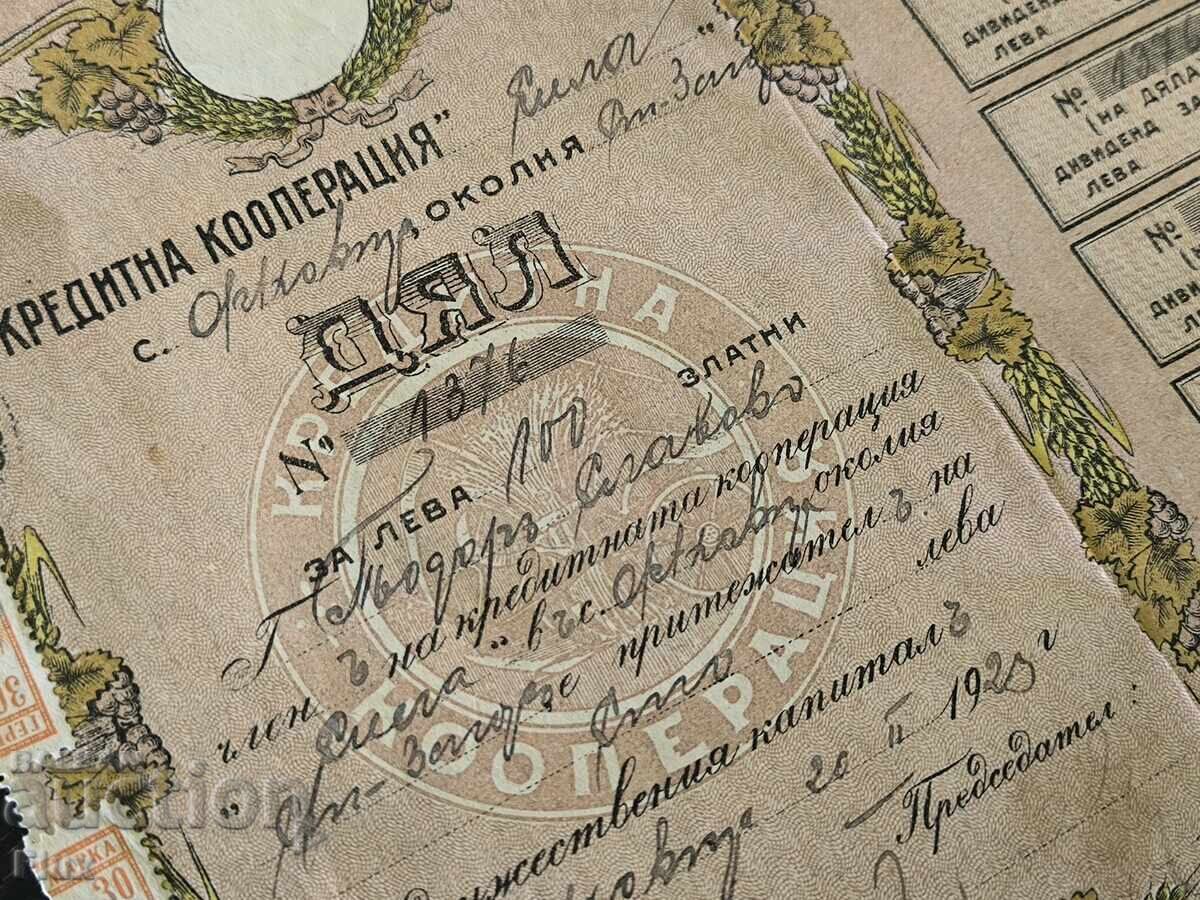 КРЕДИТНА КООПЕРАЦИЯ" Сила "
с. Орѣховица, околия Ст.-Заг
ДЯЛ
№ 1376
ЗА ЛЕВА 100 ЗЛАТНИ
Г. Тодоръ Славовъ
член ъ на кредитната кооперация
" Сила " въ с. Орѣховица околия
Ст.-Загора е притежател ъ на
сто лева
дружествения капиталъ
20 II 1925 г
Председател:
КРЕДИТНА КООПЕРАЦИЯ
ДИВИДЕНД
ЛЕВА
№ 1376
(НА ДЯЛА
ДИВИДЕНД ЗА
ЛЕВА
№
(НА
ДИВИ
ЛЕВА
№
30
ГЕР
30
auction